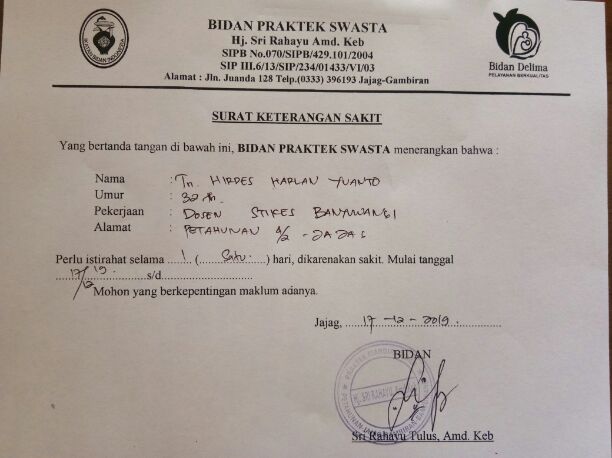 BIDAN PRAKTEK SWASTA
Hj. Sri Rahayu Amd. Keb
SIPB No.070/SIPB/429.101/2004
SIP III.6/13/SIP/234/01433/VI/03
Alamat : Jln. Juanda 128 Telp.(0333) 396193 Jajag-Gambiran
IKATAN BIDAN INDONESIA
Bidan Delima
PELAYANAN BERKUALITAS
SURAT KETERANGAN SAKIT
Yang bertanda tangan di bawah ini, BIDAN PRAKTEK SWASTA menerangkan bahwa :
Nama : Tn. HIRDES HARLAN YUANTO
Umur : 32 th.
Pekerjaan : DOSEN STIKES BANYUWANGI
Alamat : PETAHUNAN - JAJAG
Perlu istirahat selama ....1. (.... Satu. ....) hari, dikarenakan sakit. Mulai tanggal
17/12 19. s/d
Mohon yang berkepentingan maklum adanya.
Jajag, 17 - 12 - 2019.
BIDAN
HJ. SRI RAHAYU
Sri Rahayu Tulus, Amd. Keb